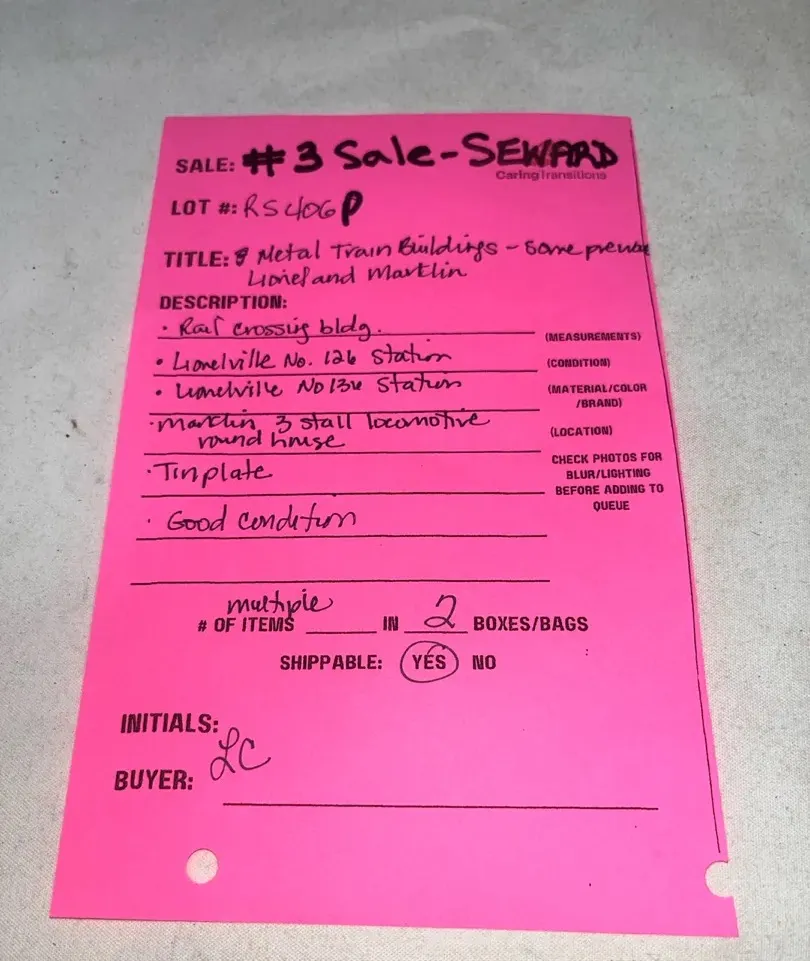 SALE: #3 Sale-SEWARD
CaringTransitions
LOT #: RS406P
TITLE: 8 Metal Train Buildings - Some prewar
Lionel and Marklin
DESCRIPTION:
• Rail crossing bldg.
(MEASUREMENTS)
• Lionelville No. 126 Station
(CONDITION)
• Lionelville No 134 Station
(MATERIAL/COLOR
/BRAND)
• Marklin 3 stall locomotive
round house
(LOCATION)
• Tinplate
CHECK PHOTOS FOR
BLUR/LIGHTING
BEFORE ADDING TO
QUEUE
• Good condition
multiple
# OF ITEMS IN 2 BOXES/BAGS
SHIPPABLE: YES NO
INITIALS:
LC
BUYER: